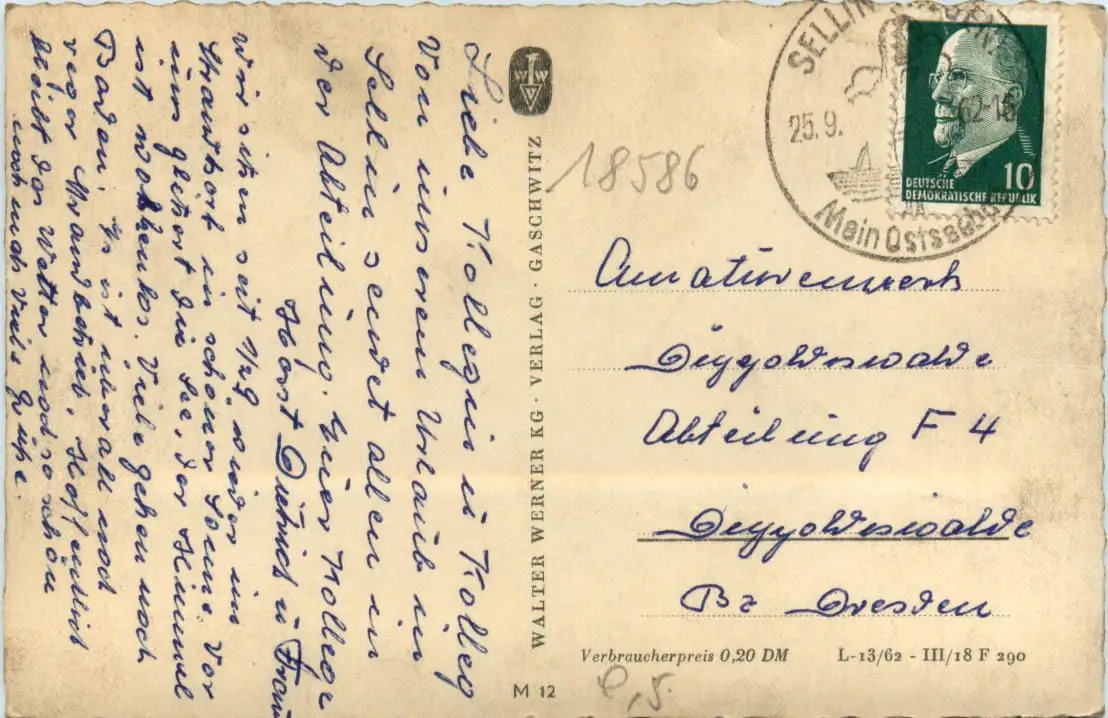 Liebe Kollegin u Kolleg
Von unseren Urlaub in
Sellin sendet allen in
der Abteilung. Euer Kollege
Horst u Frau
Wir sitzen seit 1/2 9 wieder im
Strandkorb in schöner Sonne. Vor
uns glitzert die See, der Himmel
ist wolkenlos. Viele gehen noch
Baden. Es ist überall noch
reger Strandbetrieb. Hoffentlich
bleibt das Wetter noch so schön
noch mals viele Grüße.
WW
WALTER WERNER KG · VERLAG · GASCHWITZ
M 12
18586
SELLIN
25.9.
62-16
Mein Ostseebad
10
DEUTSCHE
DEMOKRATISCHE REPUBLIK
Amaturenwerk
Dippoldiswalde
Abteilung F 4
Dippoldiswalde
Bz Dresden
Verbraucherpreis 0,20 DM L-13/62 - III/18 F 290